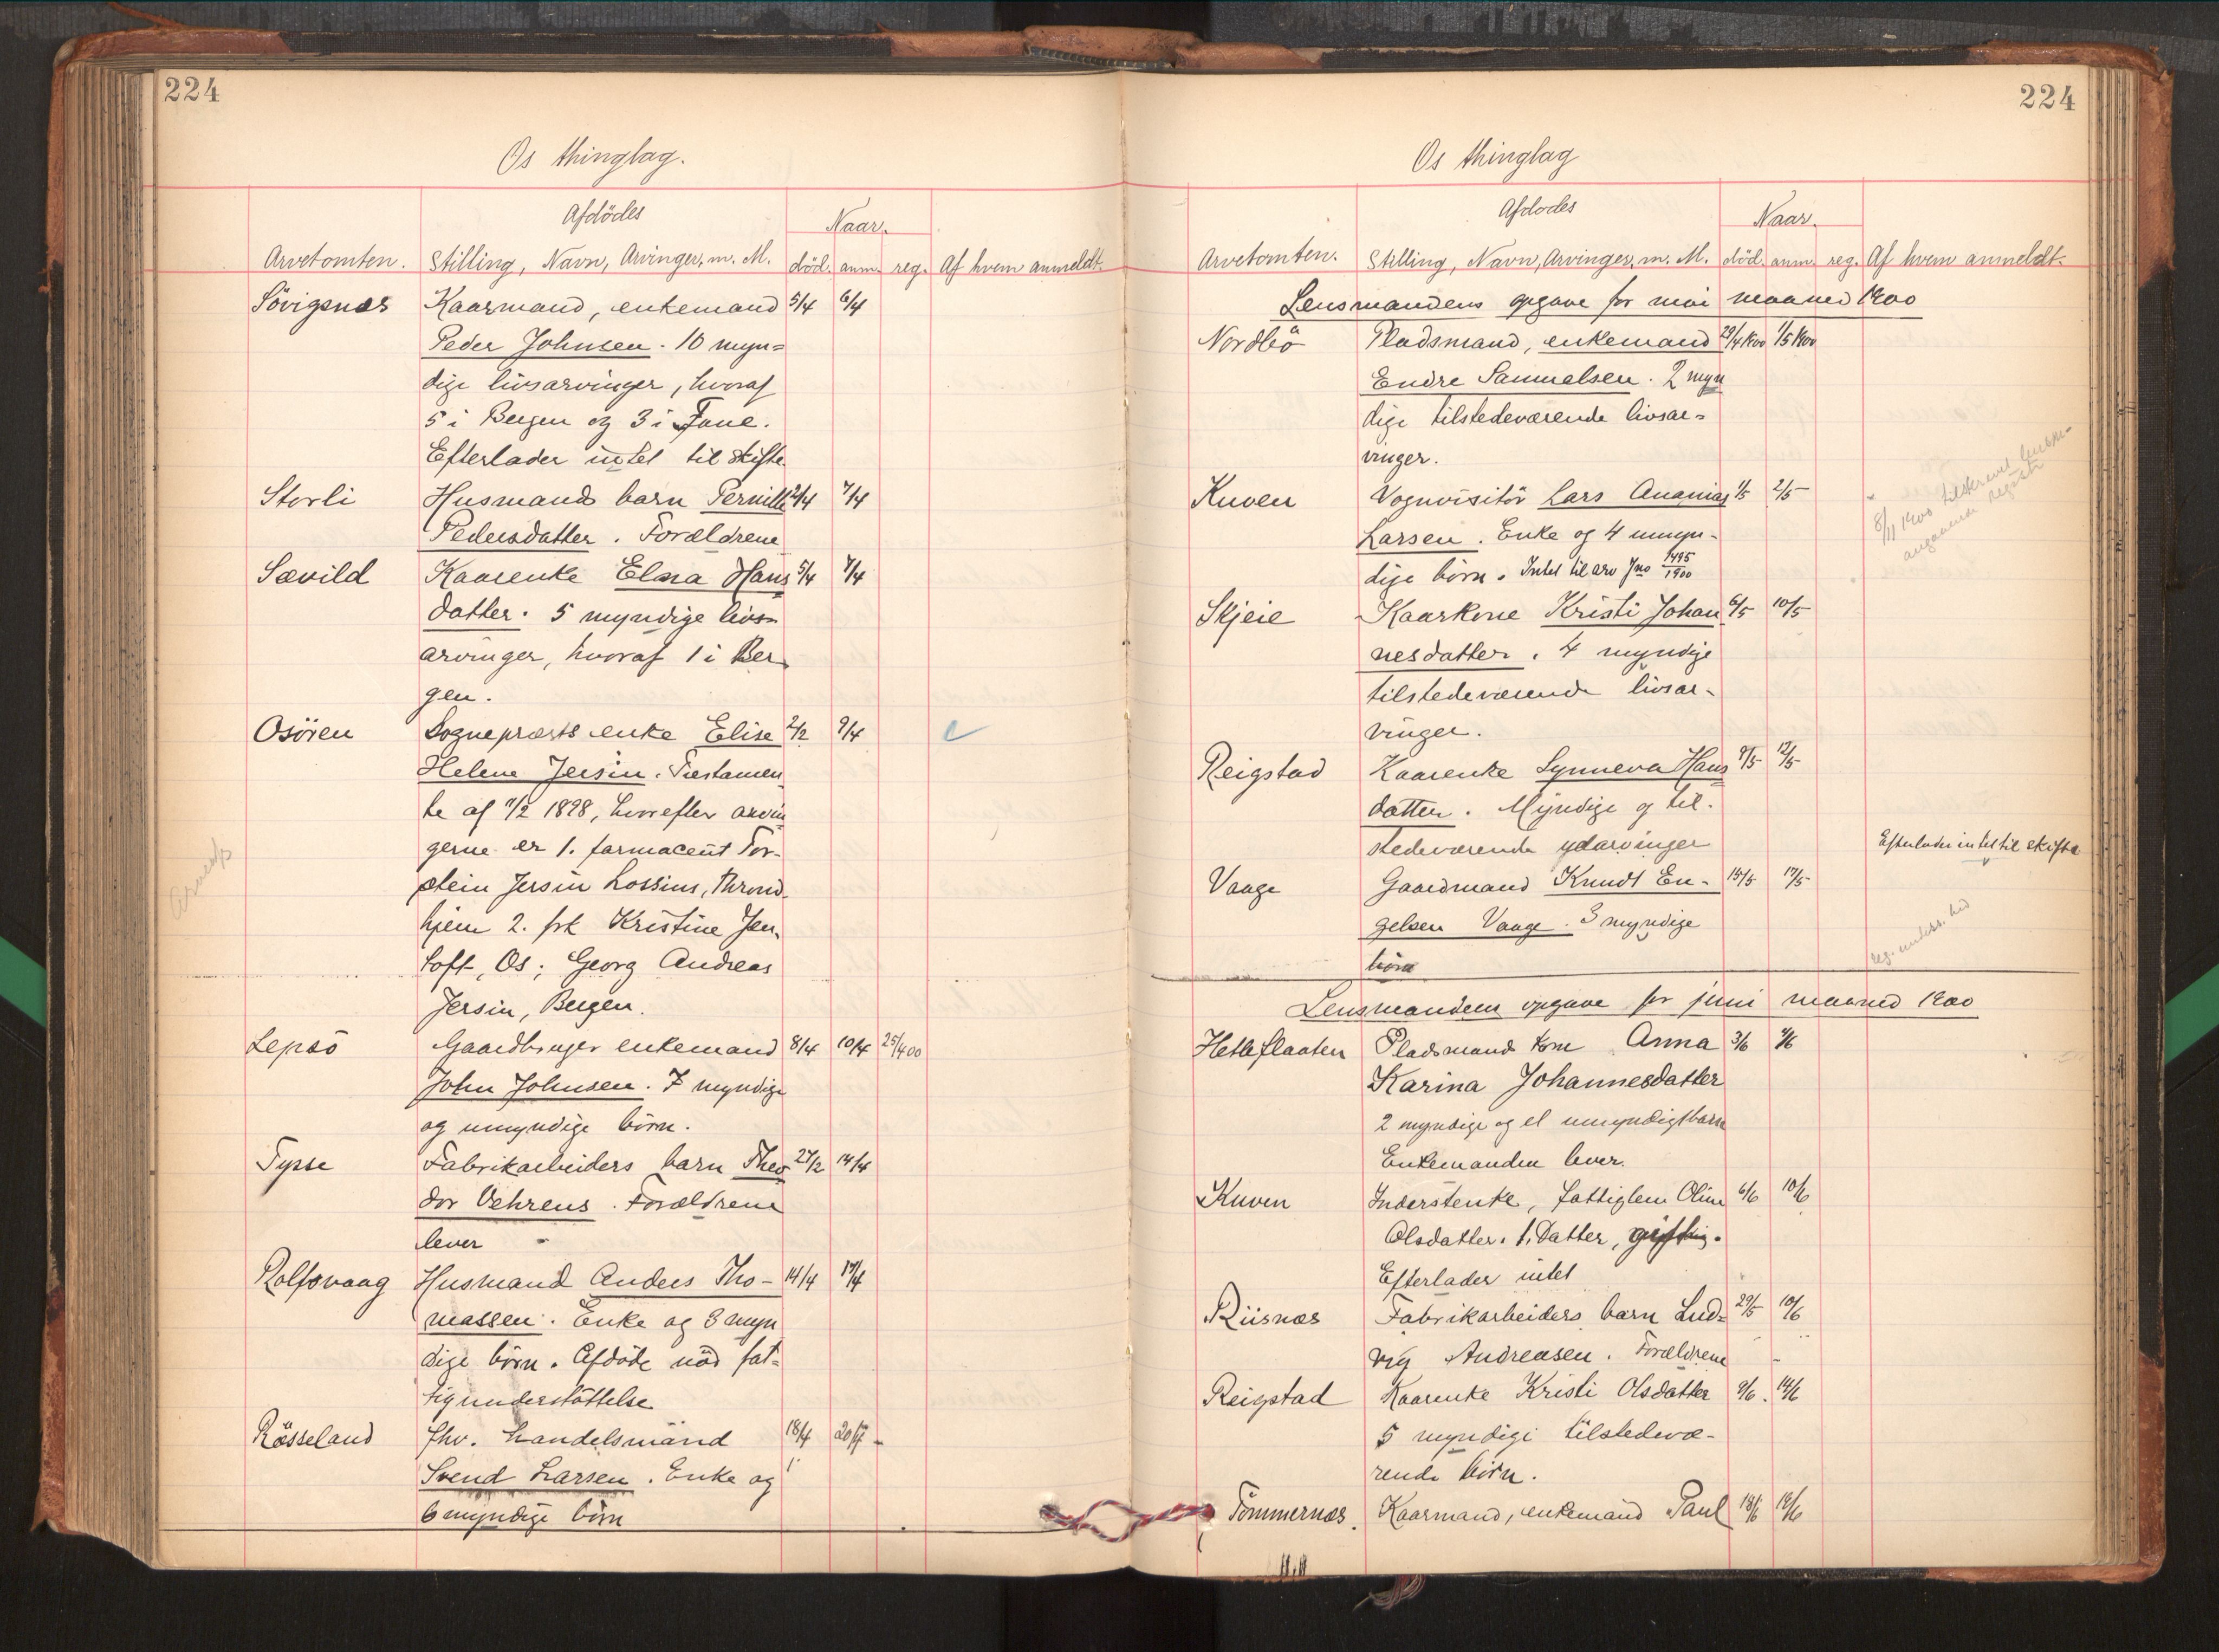 224
Os thinglag.
Afdödes
Naar.
Arvetomten. Stilling, Navn, Arvinger, m. M. död. anm. reg. Af hvem anmeldt.
Sövignæs Kaarmand, enkemand 5/4 6/4
Peder Johnsen. 10 myn=
dige livsarvinger, hvoraf
5 i Bergen og 3 i Fane.
Efterlader intet til skifte.
Storli Husmands barn Pernille 2/4 7/4
Pedersdatter. Forældrene
Sævild Kaarenke Elna Hans 5/4 7/4
datter. 5 myndige livs-
arvinger, hvoraf 1 i Ber
gen.
Osören Sogneprests enke Elise 2/2 9/4
Helene Jersin. Testamen
te af 7/2 1898, hvorefter arvin
gerne er 1. farmaceut Tor-
stein Jersin Lossius, Thrond-
hjem 2. frk Kristine Jen-
toft, Os; Georg Andreas
Jersin, Bergen.
Lepsö Gaardbruger enkemand 8/4 10/4 25/4 00
John Johnsen. 7 myndige
og umyndige börn.
Tysse Fabrikarbeiders barn Theo 27/2 14/4
dor Vehrens. Forældrene
lever
Rolfsvaag Husmand Anders Tho- 14/4 17/4
massen. Enke og 3 myn
dige börn. Afdöde nöd fat=
tigunderstöttelse
Rösseland fhv. Handelsmand 18/4 20/4 -
Svend Larsen. Enke og
6 myndige börn
224
Os thinglag
Afdodes
Naar.
Arvetomten. Stilling, Navn, Arvinger, m. M. död. anm. reg. Af hvem anmeldt.
Lensmandens opgave for mai maaned 1900
Nordbö Pladsmand, enkemand 29/4 1900 1/5 1900
Endre Samuelsen. 2 myn
dige tilstedeværende livsar=
vinger.
Kuven Vognvisitör Lars Ananias 1/5 2/5
Larsen. Enke og 4 umyn-
dige börn. Intet til arv Jno 1495/1900
8/11 1900 tilskrevet lensm-
angaaende registr
Skjeie Kaarkone Kristi Johan 6/5 10/5
nesdatter. 4 myndige
tilstedeværende livsar-
vinger.
Reigstad Kaarenke Synneva Hans 9/5 12/5
datter. Myndige og til-
stedeværende udarvinger
Efterlader intet til skifte
Vaage Gaardmand Knudt En- 15/5 17/5
gelsen Vaage. 3 myndige
börn
Lensmandens opgave for juni maaned 1900
Hetleflaaten Pladsmands kone Anna 3/6 4/6
Karina Johannesdatter
2 myndige og et umyndigt barn
Enkemanden lever.
Kuven Inderstenke, fattiglem Oline 6/6 10/6
Olsdatter. 1. Datter,
Efterlader intet
Riisnæs Fabrikarbeiders barn Lud= 29/5 10/6
vig Andreasen. Forældrene
Reigstad Kaarenke Kristi Olsdatter 9/6 14/6
5 myndige tilstedevæ-
rende börn.
Tömmernæs. Kaarmand, enkemand Paul 18/6 18/6